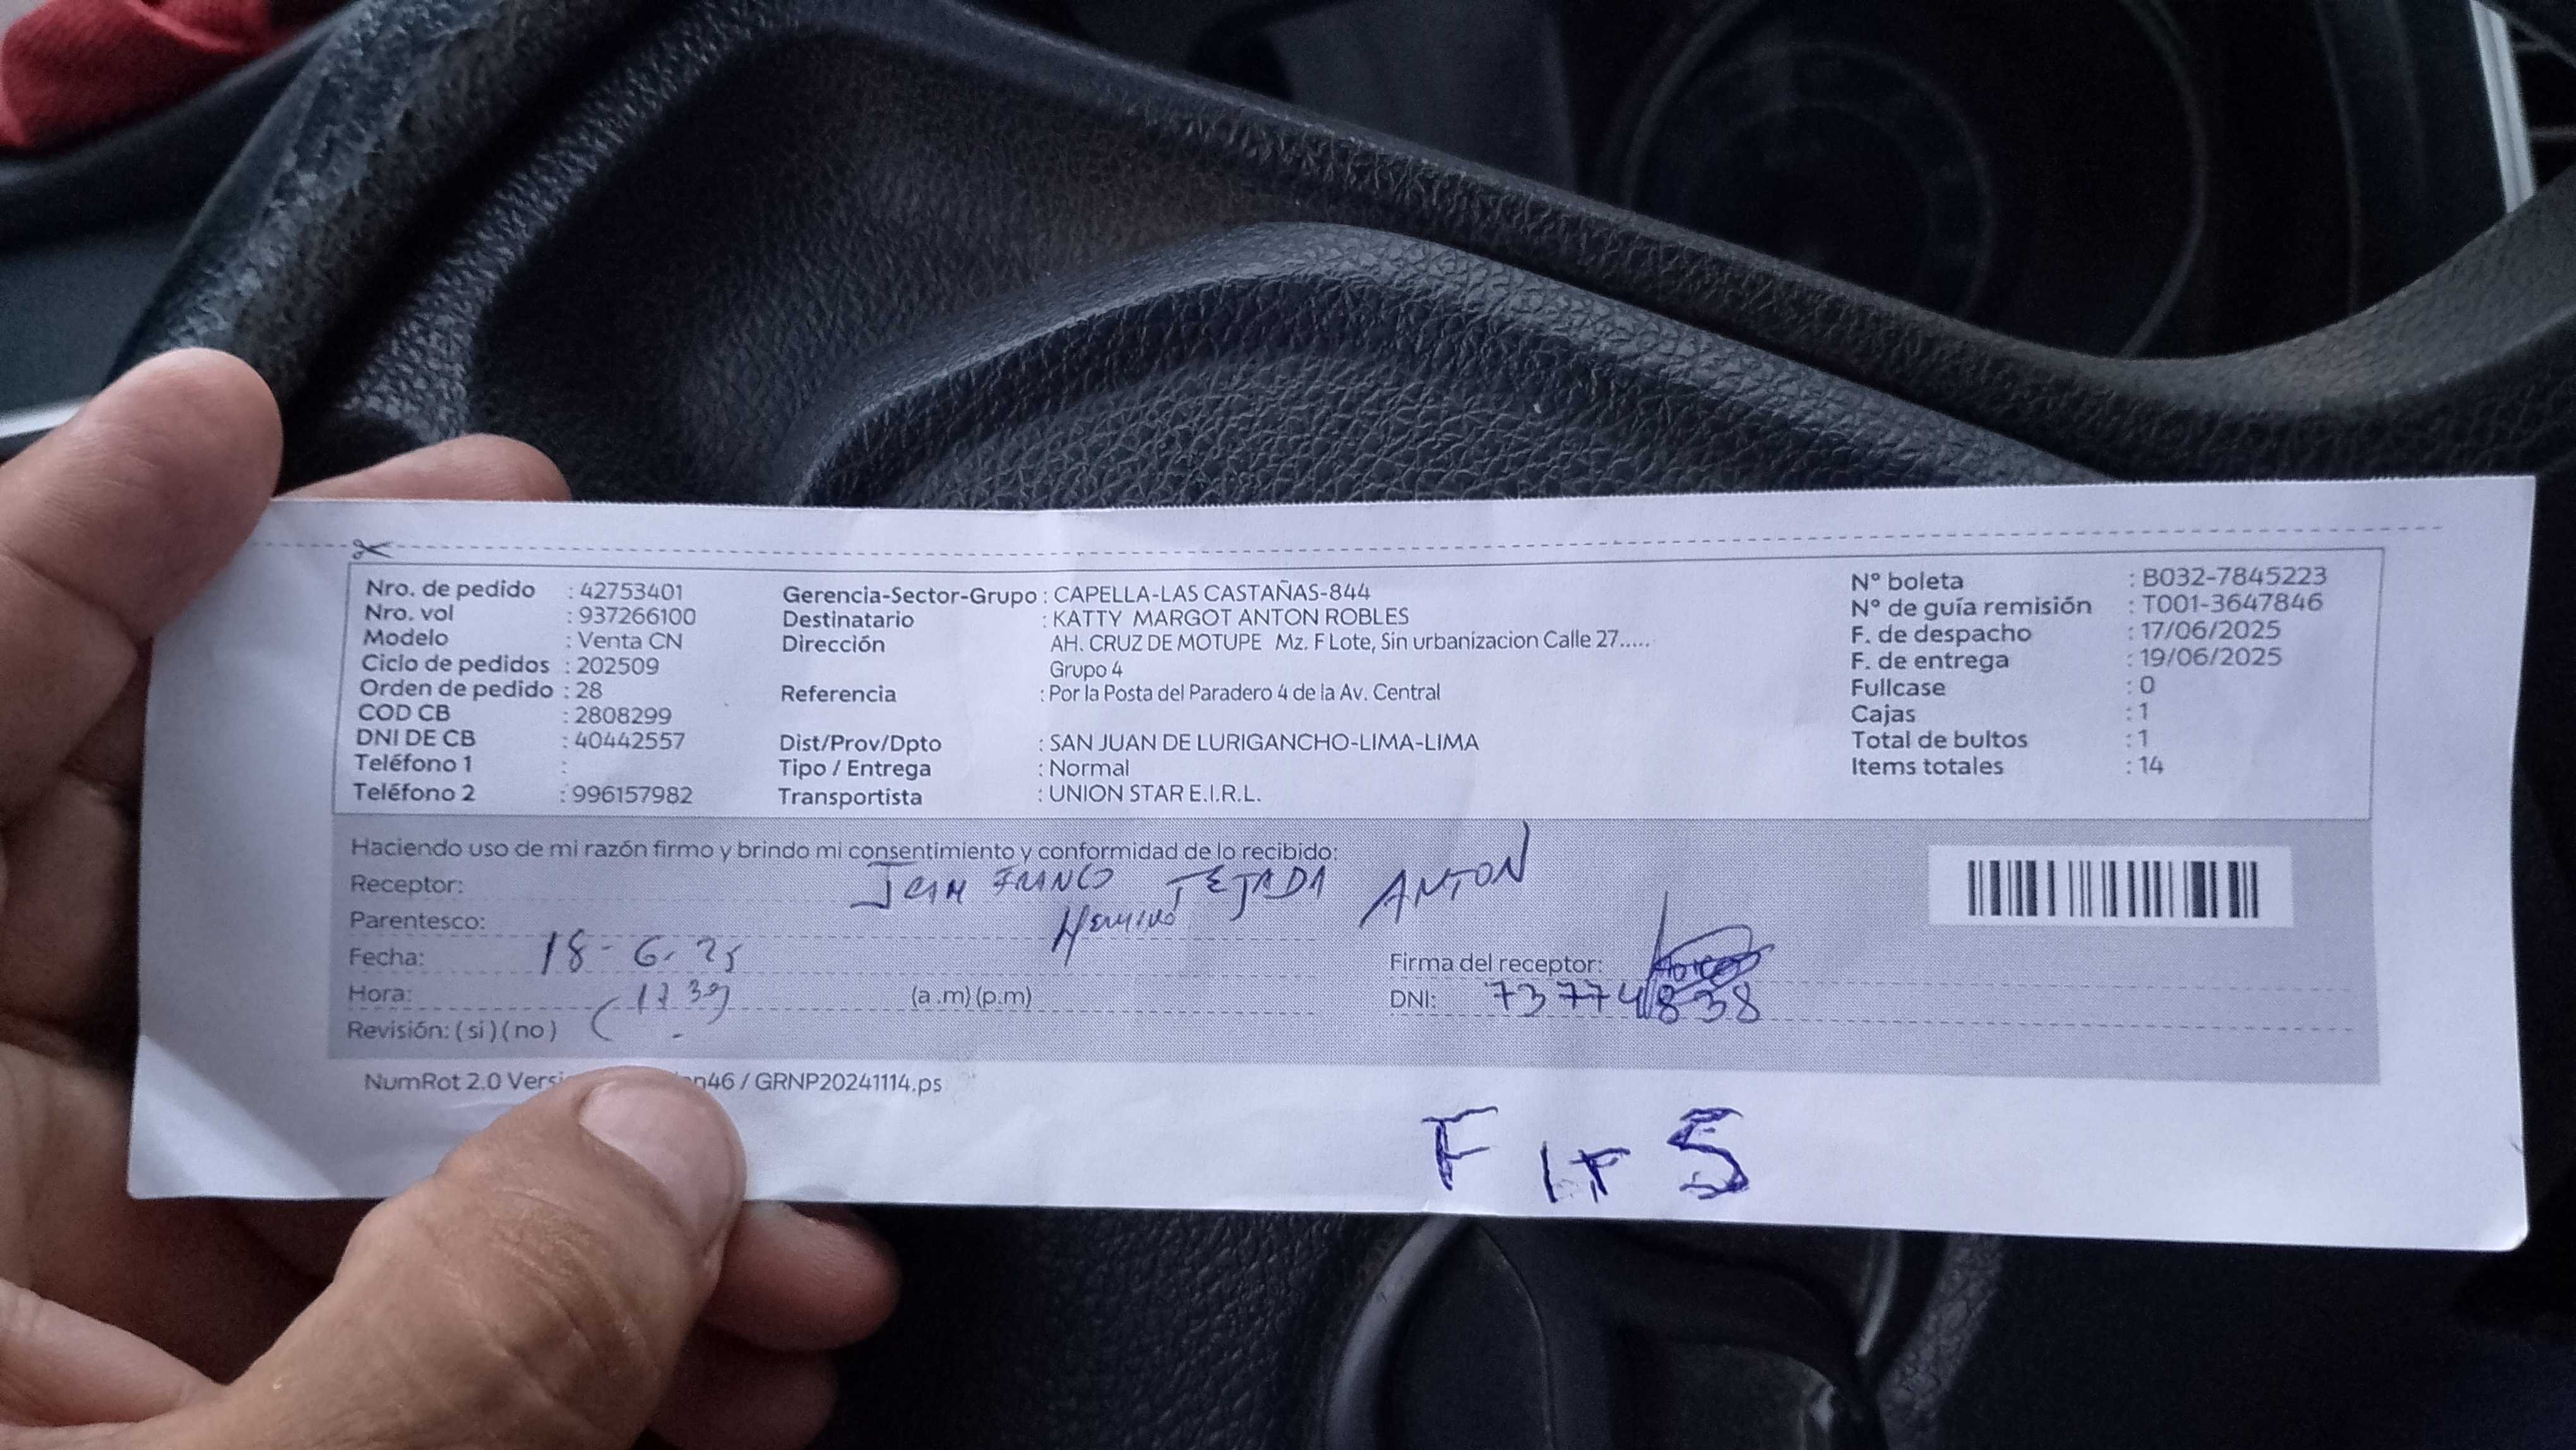 Nro. de pedido : 42753401
Nro. vol : 937266100
Modelo : Venta CN
Ciclo de pedidos : 202509
Orden de pedido : 28
COD CB : 2808299
DNI DE CB : 40442557
Teléfono 1 :
Teléfono 2 : 996157982
Gerencia-Sector-Grupo : CAPELLA-LAS CASTAÑAS-844
Destinatario : KATTY MARGOT ANTON ROBLES
Dirección AH. CRUZ DE MOTUPE Mz. F Lote, Sin urbanizacion Calle 27.....
Grupo 4
Referencia : Por la Posta del Paradero 4 de la Av. Central
Dist/Prov/Dpto : SAN JUAN DE LURIGANCHO-LIMA-LIMA
Tipo / Entrega : Normal
Transportista : UNION STAR E.I.R.L.
N° boleta : B032-7845223
N° de guía remisión : T001-3647846
F. de despacho : 17/06/2025
F. de entrega : 19/06/2025
Fullcase : 0
Cajas : 1
Total de bultos : 1
Items totales : 14
Haciendo uso de mi razón firmo y brindo mi consentimiento y conformidad de lo recibido:
Receptor: FRANCO TEJADA ANTON
Parentesco:
Fecha: 18-6.25
Hora: (a.m) (p.m)
Revisión: ( si ) ( no )
Firma del receptor:
DNI: 73774838
NumRot 2.0 46 / GRNP20241114.ps
F 1F 5